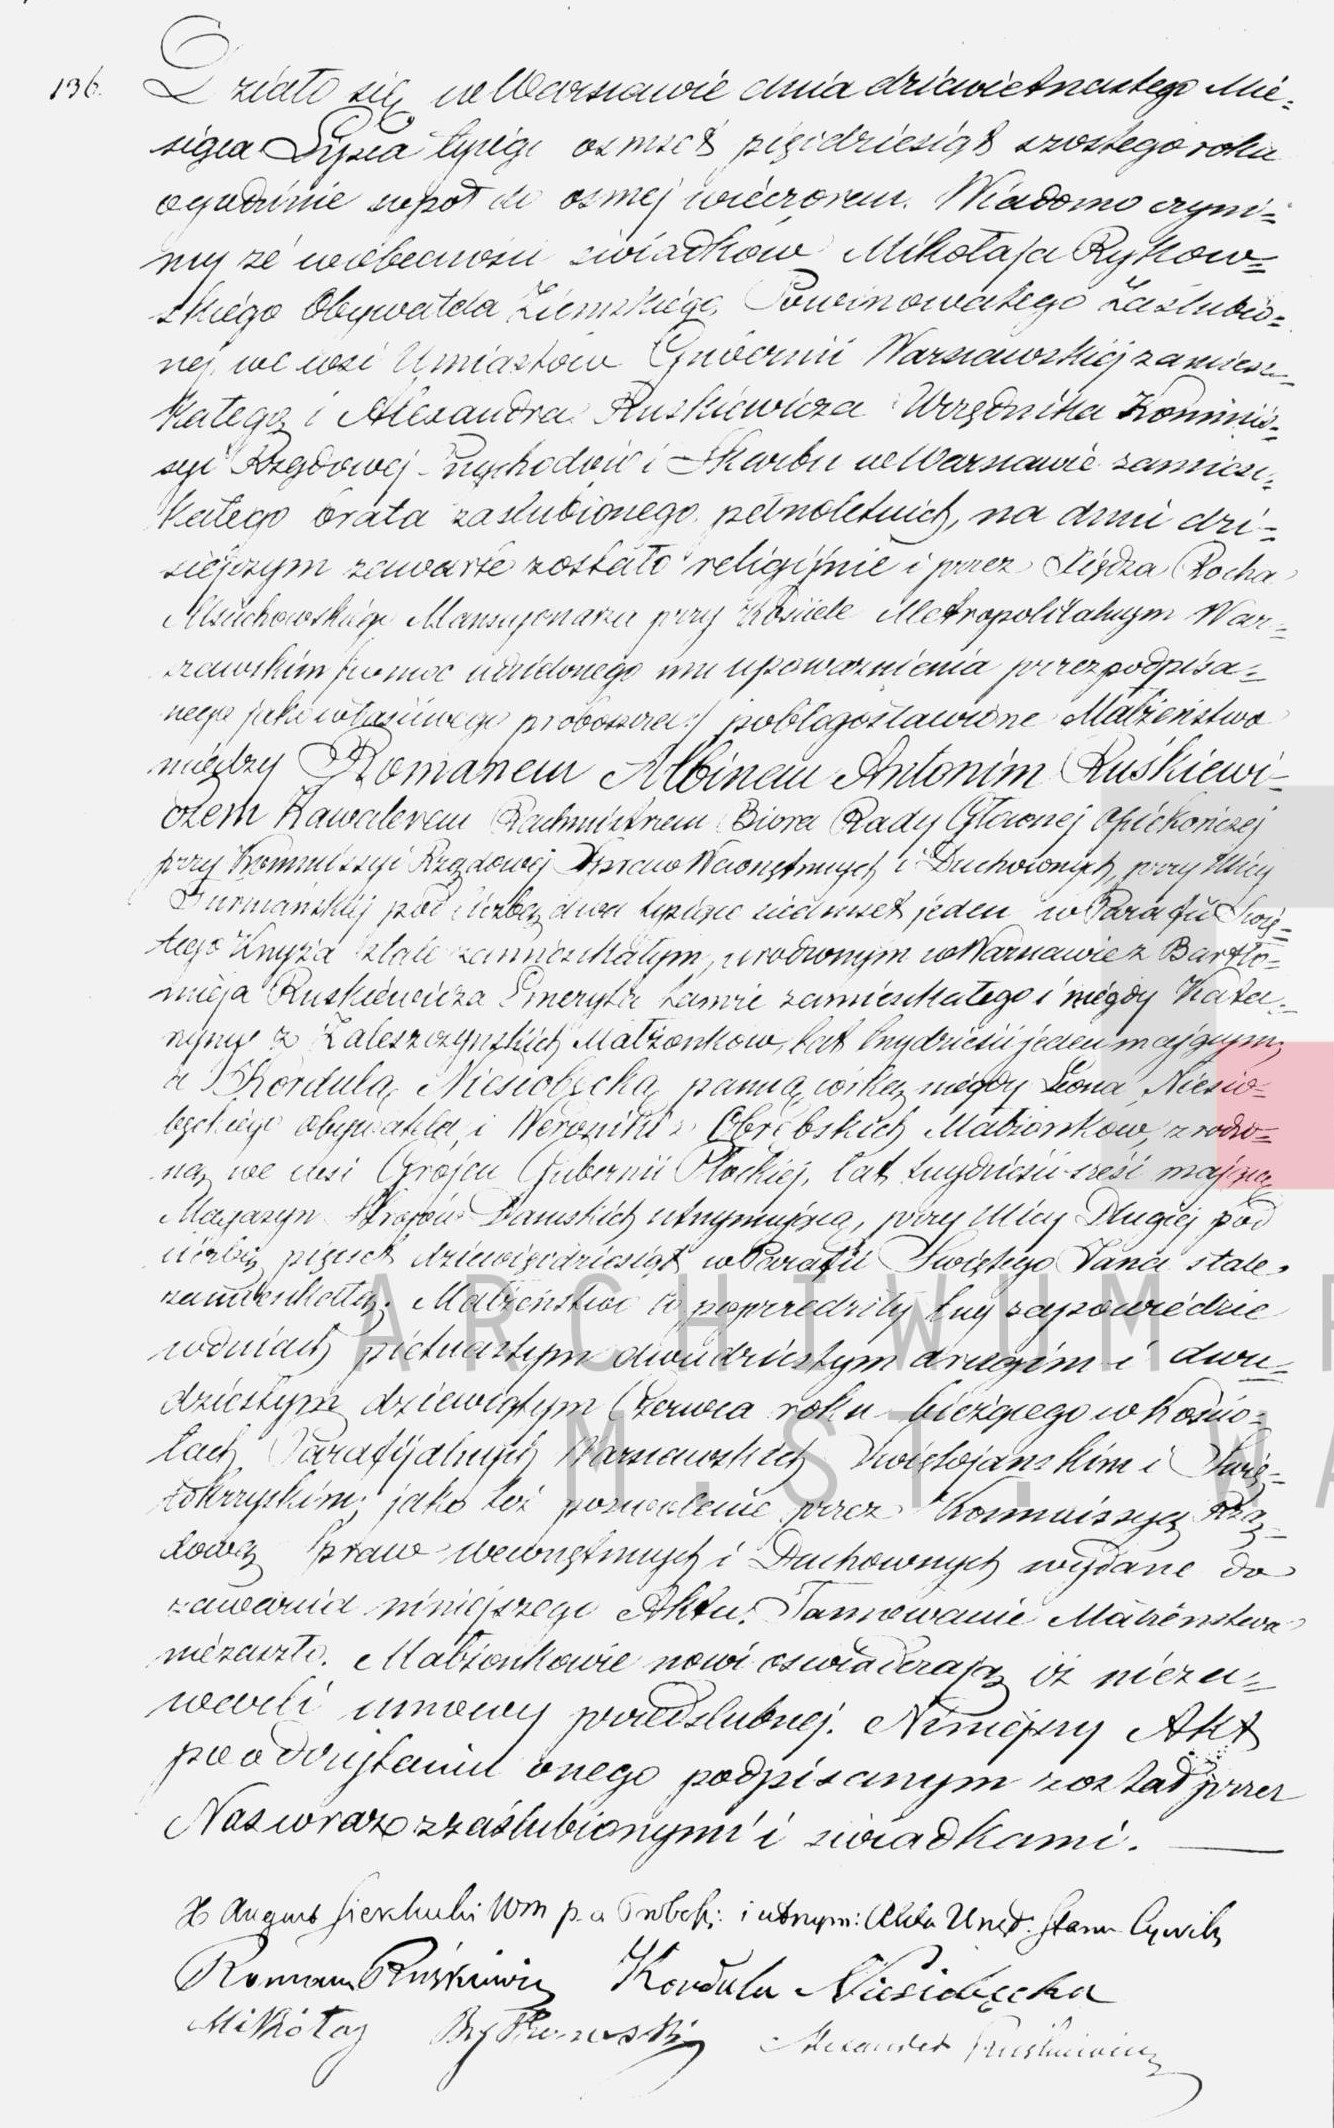 136. Działo się w Warszawie dnia dziewietnastego Mie=
siąca Lipca tysiąc osmset pięćdziesiąt szostego roku
o godzinie wpoł do osmej wieczorem. Wiadomo czyni=
my że w obecności świadków Mikołaja Rykow=
skiego Obywatela Ziemskiego, Powinowatego Zaślubio=
nej, we wsi Umiastów Gubernii Warszawskiej zamiesz=
kałego, i Alexandra Ruskiewicza Urzędnika Kommis=
syi Rządowej Przychodów i Skarbu w Warszawie zamiesz=
kałego brata zaslubionego, pełnoletnich, na dniu dzi=
siejszym zawarte zostało religijnie i przez Xiędza Rocha
Mansyonarza przy Kościele Metropolitalnym War=
szawskim /:z mocy udzielonego mu upoważnienia przez podpisa=
nego jako właściwego proboszcza:/ pobłogosławione Małżeństwo
między Romanem Albinem Antonim Ruśkiewi=
czem Kawalerem Rachmistrzem Biura Rady Głównej Opiekończej
przy Kommissyi Rządowej Spraw Wewnętrznych i Duchownych, przy Ulicy
Furmańskiej pod liczbą dwa tysiące siedmset jeden w Parafii Swię=
tego Krzyża stale zamieszkałym, urodzonym w Warszawie z Bartło=
mieja Ruskiewicza Emeryta tamże zamieszkałego i niegdy Kata=
rzyny z Zaleszczyńskich Małżonków, lat trzydzieści jeden mającym,
a Kordulą Niesiobęcką panną, córką niegdy Leona Niesio=
bęckiego obywatela, i Weroniki z Obrębskich Małżonków, zrodzo=
ną we wsi Grójcu Gubernii Płockiej, lat trzydzieści sześć mającą
Magazyn Strojów Damskich utrzymującą, przy Ulicy Długiej pod
liczbą pięćset dziewięćdziesiąt w Parafii Swiętego Jana stale
zamieszkałą. Małżeństwo to poprzedziły trzy zapowiedzie
w dniach piętnastym dwudziestym drugim i dwu=
dziestym dziewiątym Czerwca roku bieżącego w Kościo=
łach Parafijalnych Warszawskich Swiętojańskim i Swię=
tokrzyskim; jako też pozwolenie przez Kommissyą Rzą=
dową Spraw Wewnętrznych i Duchownych wydane do
zawarcia niniejszego Aktu. Tamowanie Małżeństwa
niezaszło. Małżonkowie nowi oswiadczają iż nieza=
warli umowy przedslubnej. Niniejszy Akt
po odczytaniu onego podpisanym został przez
Nas wraz z zaślubionymi i swiadkami.
X August Sierkucki i utrzym: Akta Urzęd. Stanu Cywil
Roman Ruśkiewicz Kordula Niesiobęcka
Mikołay Rykowski Alexander Ruśkiewicz
ARCHIWUM P
M. ST. WA